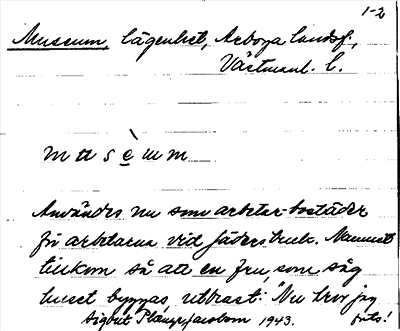 1-2
Museum, lägenhet, Arboga landsf.,
Västmanl. l.
m u s è u m
Användes nu som arbetar-bostäder
för arbetarna vid Jäders bruk. Namnet
tillkom så att en fru, som såg
huset byggas, utbrast: "Nu tror jag
Sigbrit Plænge Jacobson 1943. fritz!